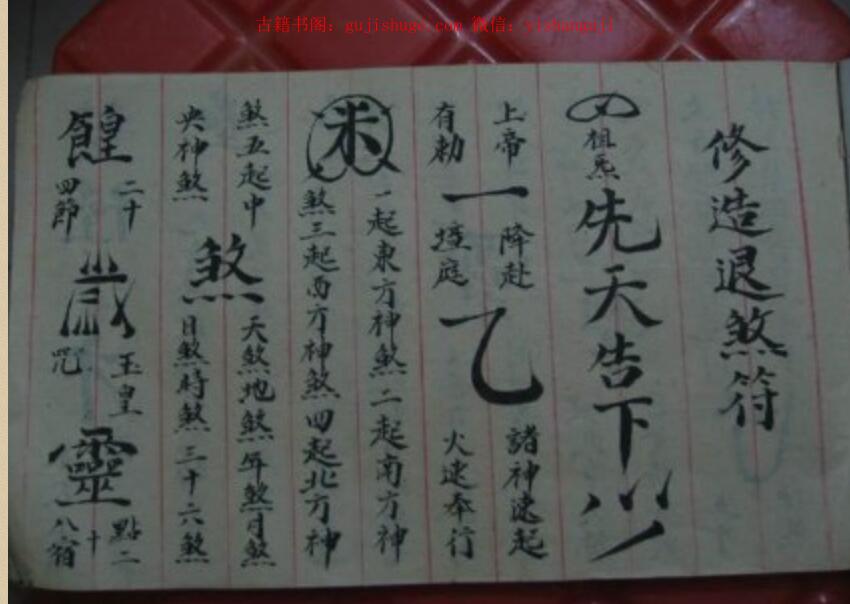 古籍书阁：gujishuge.com 微信：yishanguji
修造退煞符
祖炁
先天告下
上帝 降赴 諸神速起
有勅 壇庭 火速奉行
一 乙
米
一起東方神煞二起南方神
煞三起西方神煞四起北方神
煞五起中
央神煞
煞
天煞地煞年煞月煞
日煞時煞三十六煞
二十 玉皇 點二
四節 咒 十八宿
歲靈